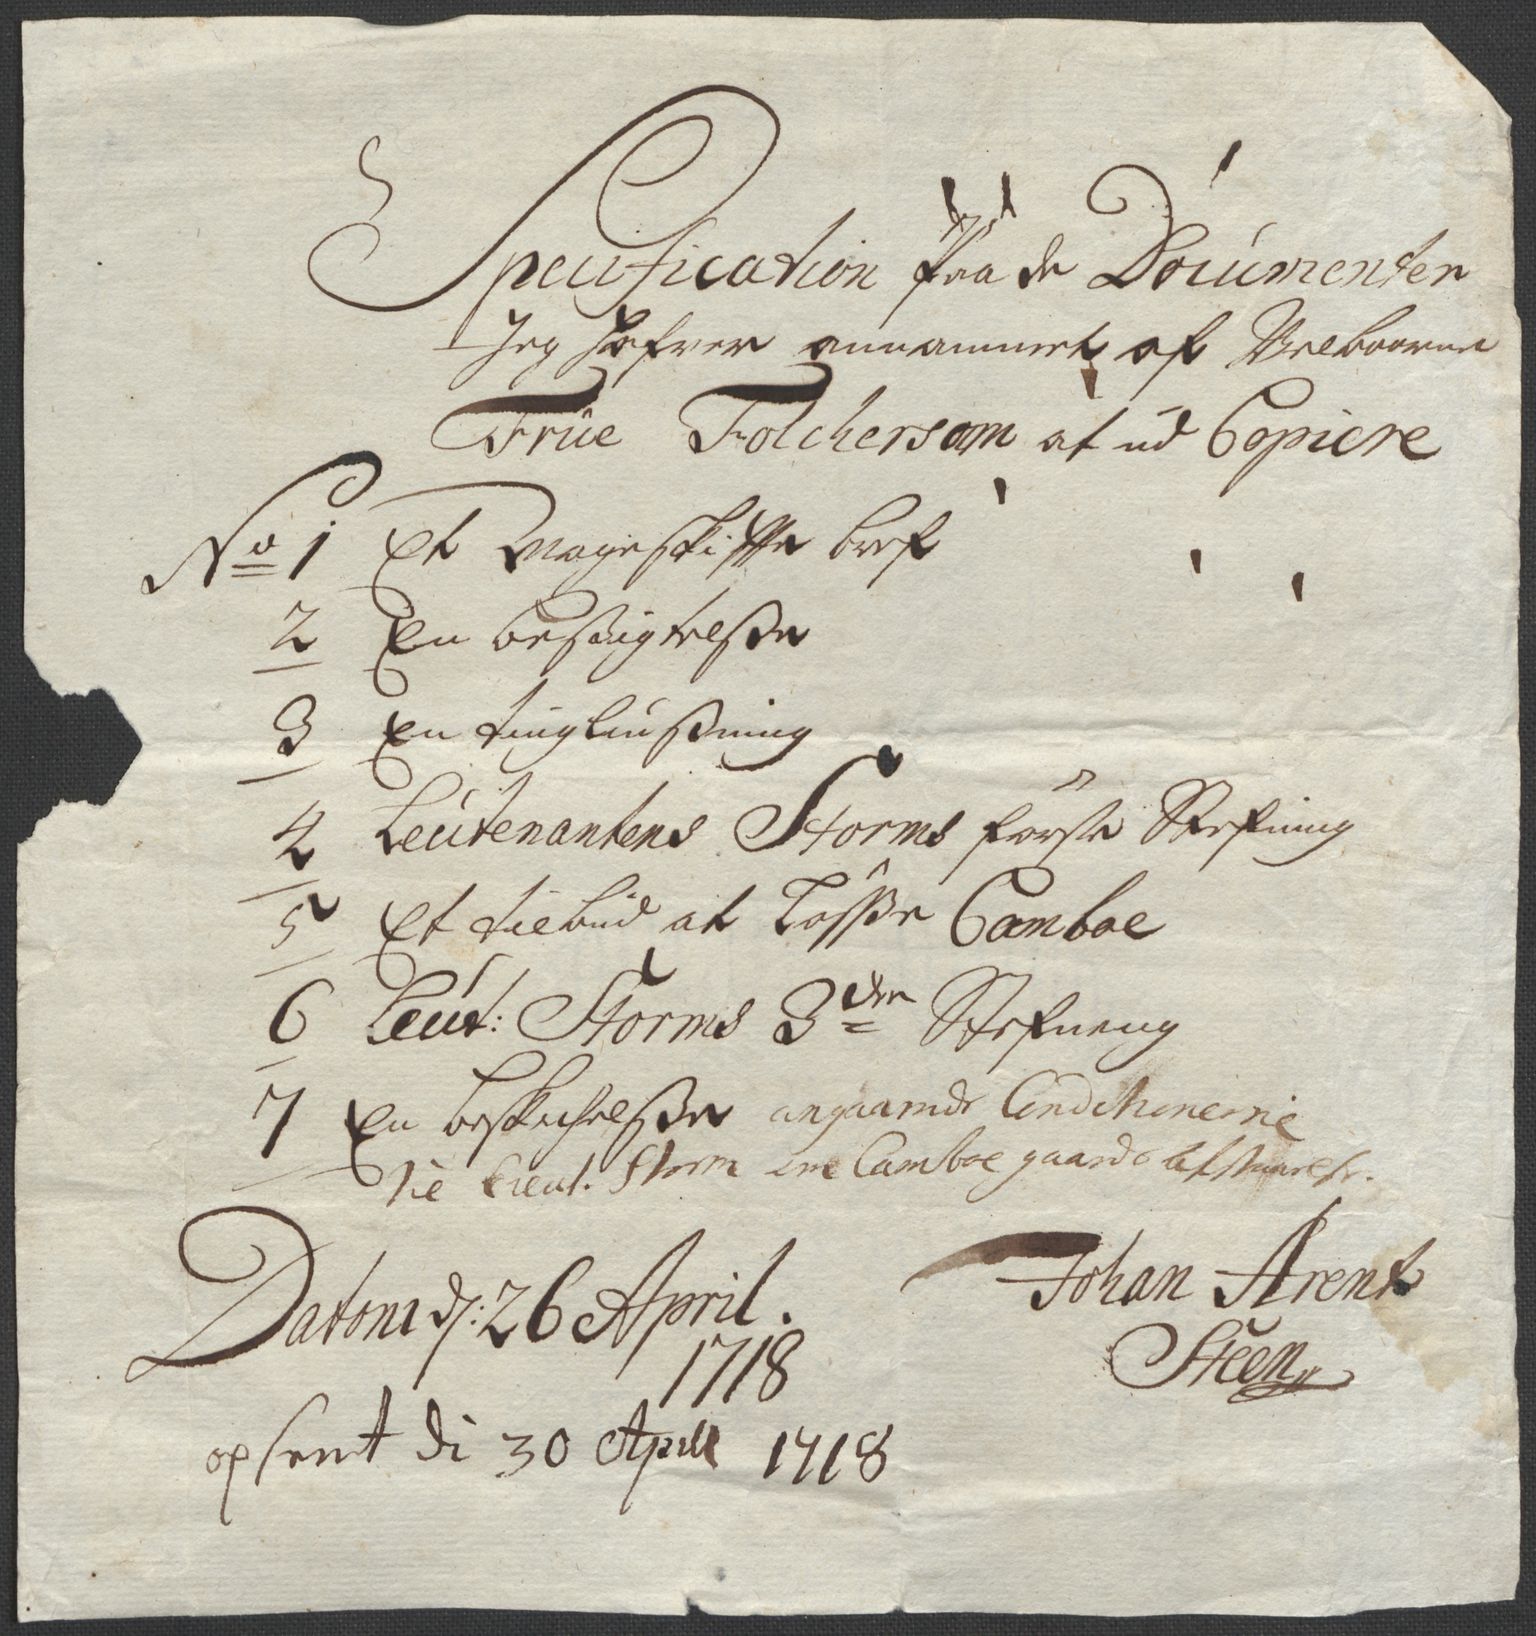 Specification paa de Documenter
Jeg Hafver annammet af Velbaarne
Frue Folchersam at ud Copiere
No 1 Et Mageskiffte bref
2 En besigtelsse
3 En tingliusning
4 Leutenantens Storms første Stefning
5 Et tilbud at løsse Camboe
6 Leut: Storms 3die Stefneng
7 En beskichelsse angaaende Conditionerne
til Lieut. Storm om Camboe gaards
Datom d: 26 April.
1718
Johan Arent
Steen
opsent di 30 April 1718